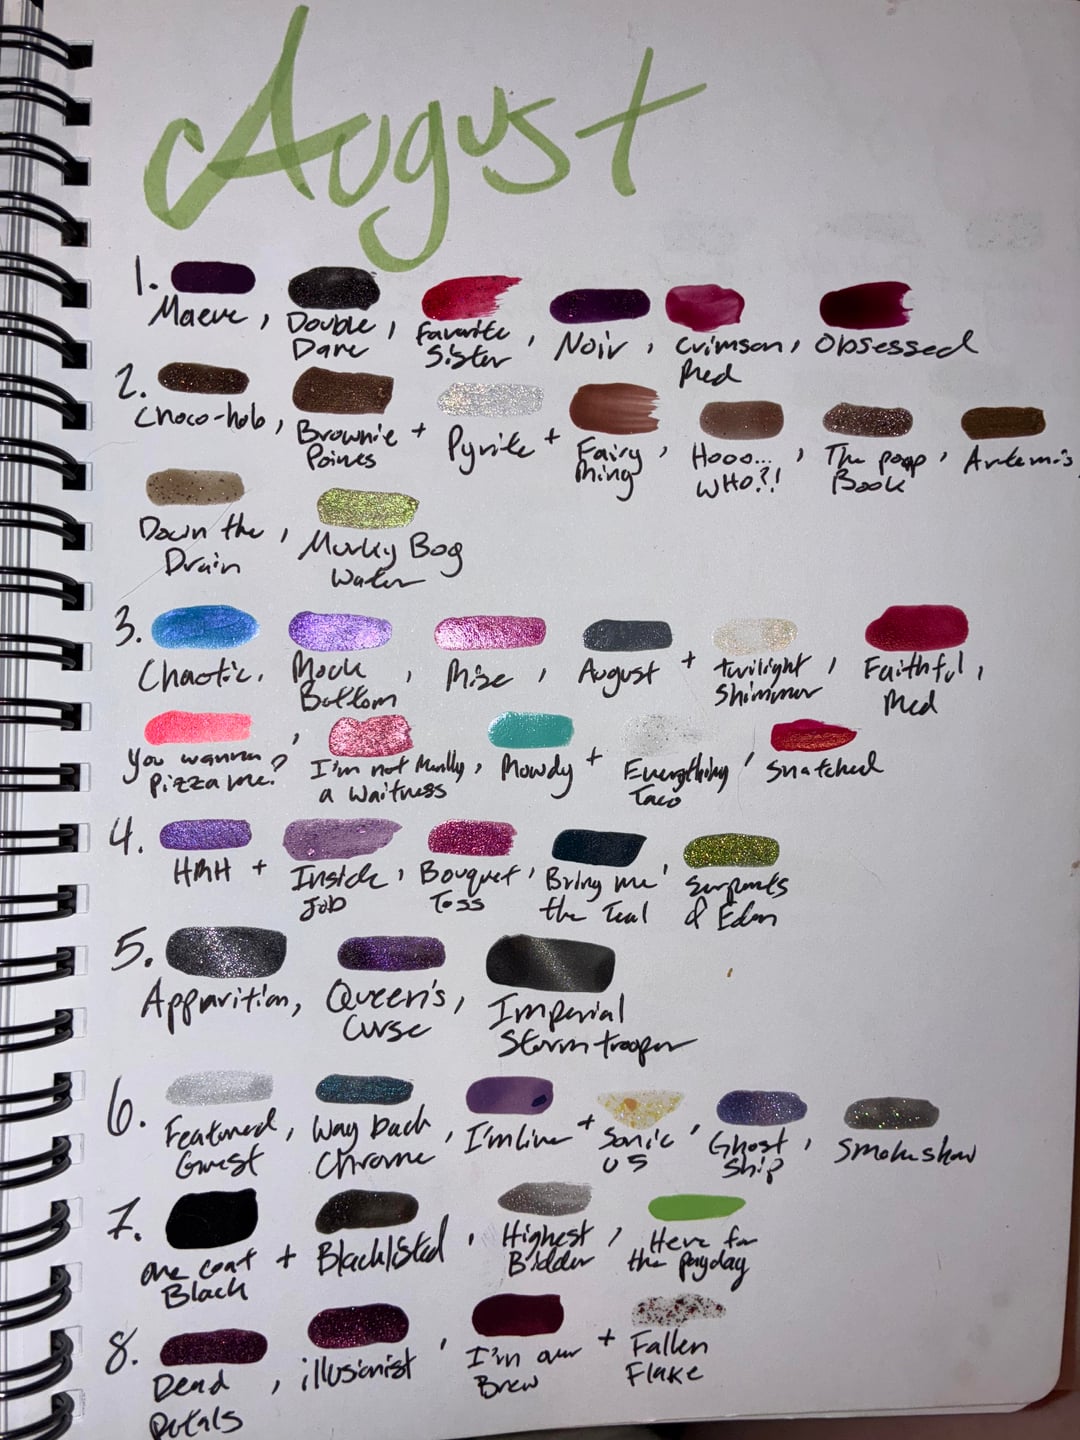 August
1. Maeve, Double Dare, Favorite Sister, Noir, Crimson Red, Obsessed
2. Choco-holo, Brownie Points + Pyrite + Fairy Ring, Hooo... WHO?!, The poop Book, Artemis
Down the Drain, Murky Bog Water
3. Chaotic, Rock Bottom, Rize, August + twilight Shimmer, Faithful Red,
You wanna Pizza me?, I'm not Really a Waitress, Rowdy + Everything Taco, Snatched
4. HRH + Inside Job, Bouquet Toss, Bring me the Teal, Serpents of Eden
5. Apparition, Queen's Curse, Imperial Stormtrooper
6. Featured Guest, Way back Chrome, I'm live + Sonic US, Ghost Ship, Smokeshow
7. one coat Black + Blacklisted, Highest Bidder, Here for the payday
8. Dead Petals, illusionist, I'm over Brew + Fallen Flake